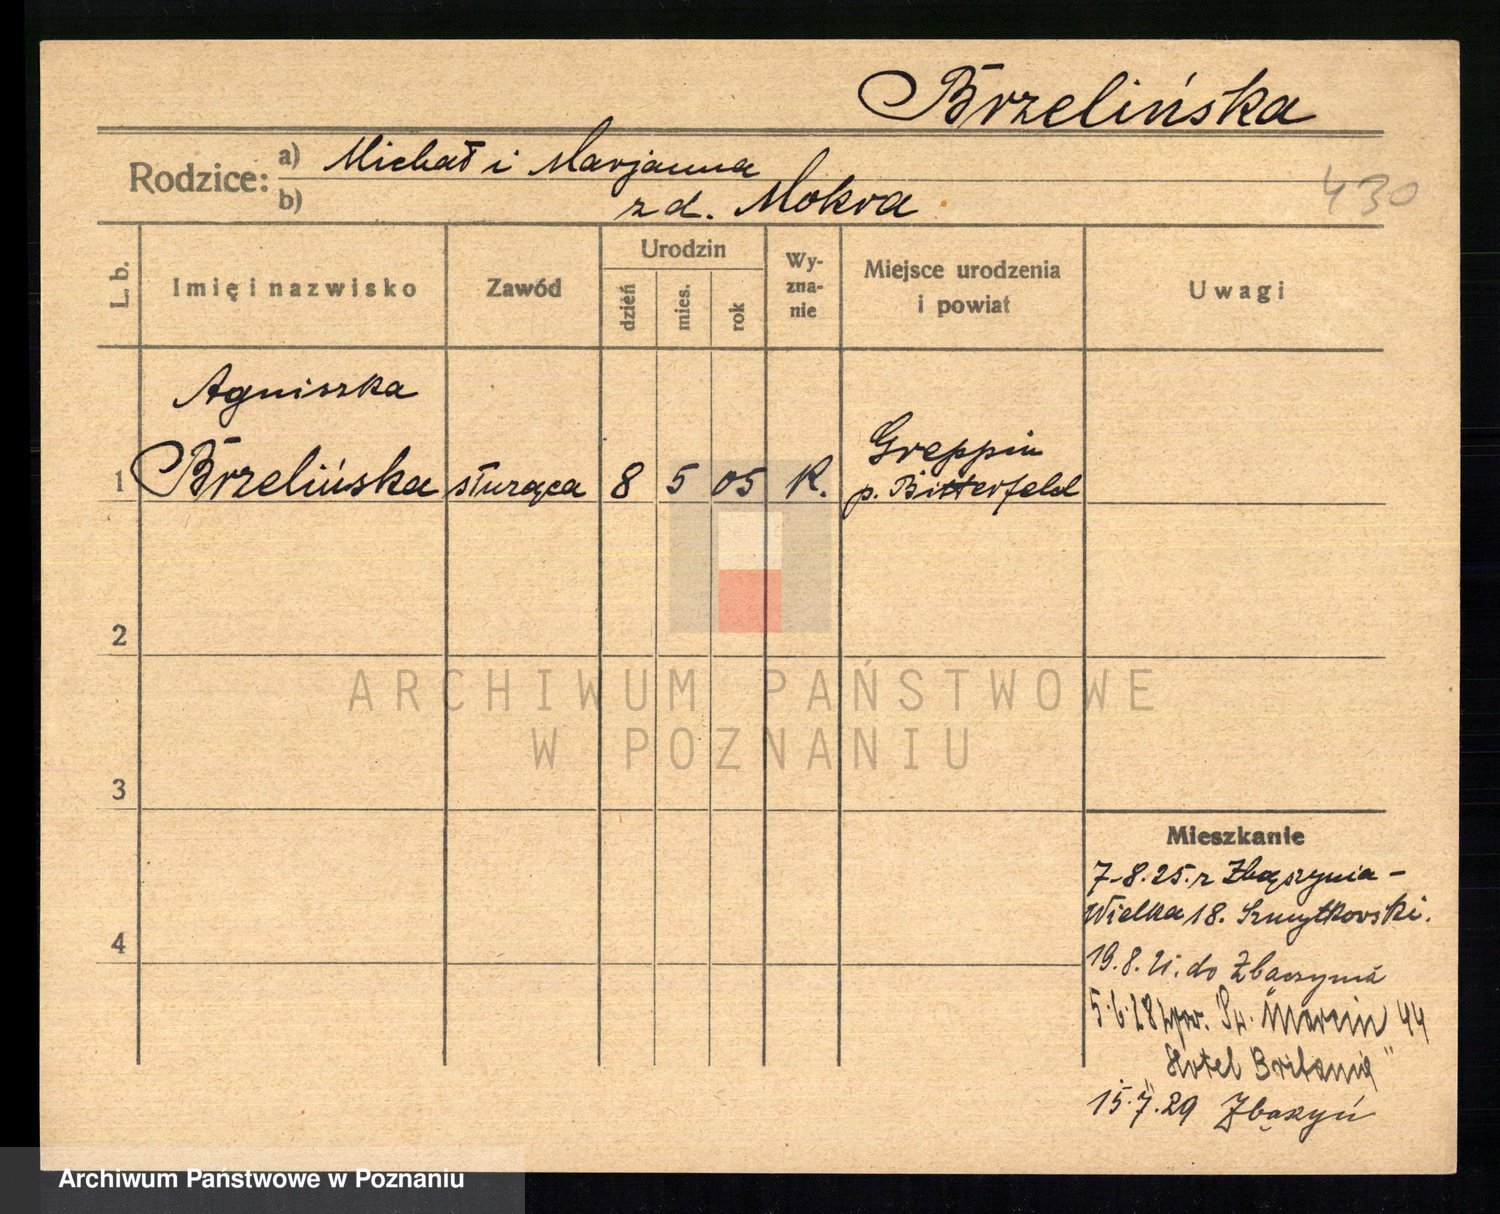 Brzelińska
Rodzice: a) Michał i Marjanna
b) zd. Mokra
430
L. b.
Imię i nazwisko
Zawód
Urodzin
dzień
mies.
rok
Wy-
zna-
nie
Miejsce urodzenia
i powiat
Uwagi
Agniszka
1 Brzelińska służąca 8 5 05 K. Greppin
p. Bitterfeld
2
3
4
ARCHIWUM PAŃSTWOWE
W POZNANIU
Mieszkanie
7.8.25. z Zbąszynia -
Wielka 18. Szmytkowski.
19.8.25. do Zbąszynia
5.6.28 Św. Marcin 44
"Hotel Britania"
15.7.29 Zbąszyń
Archiwum Państwowe w Poznaniu